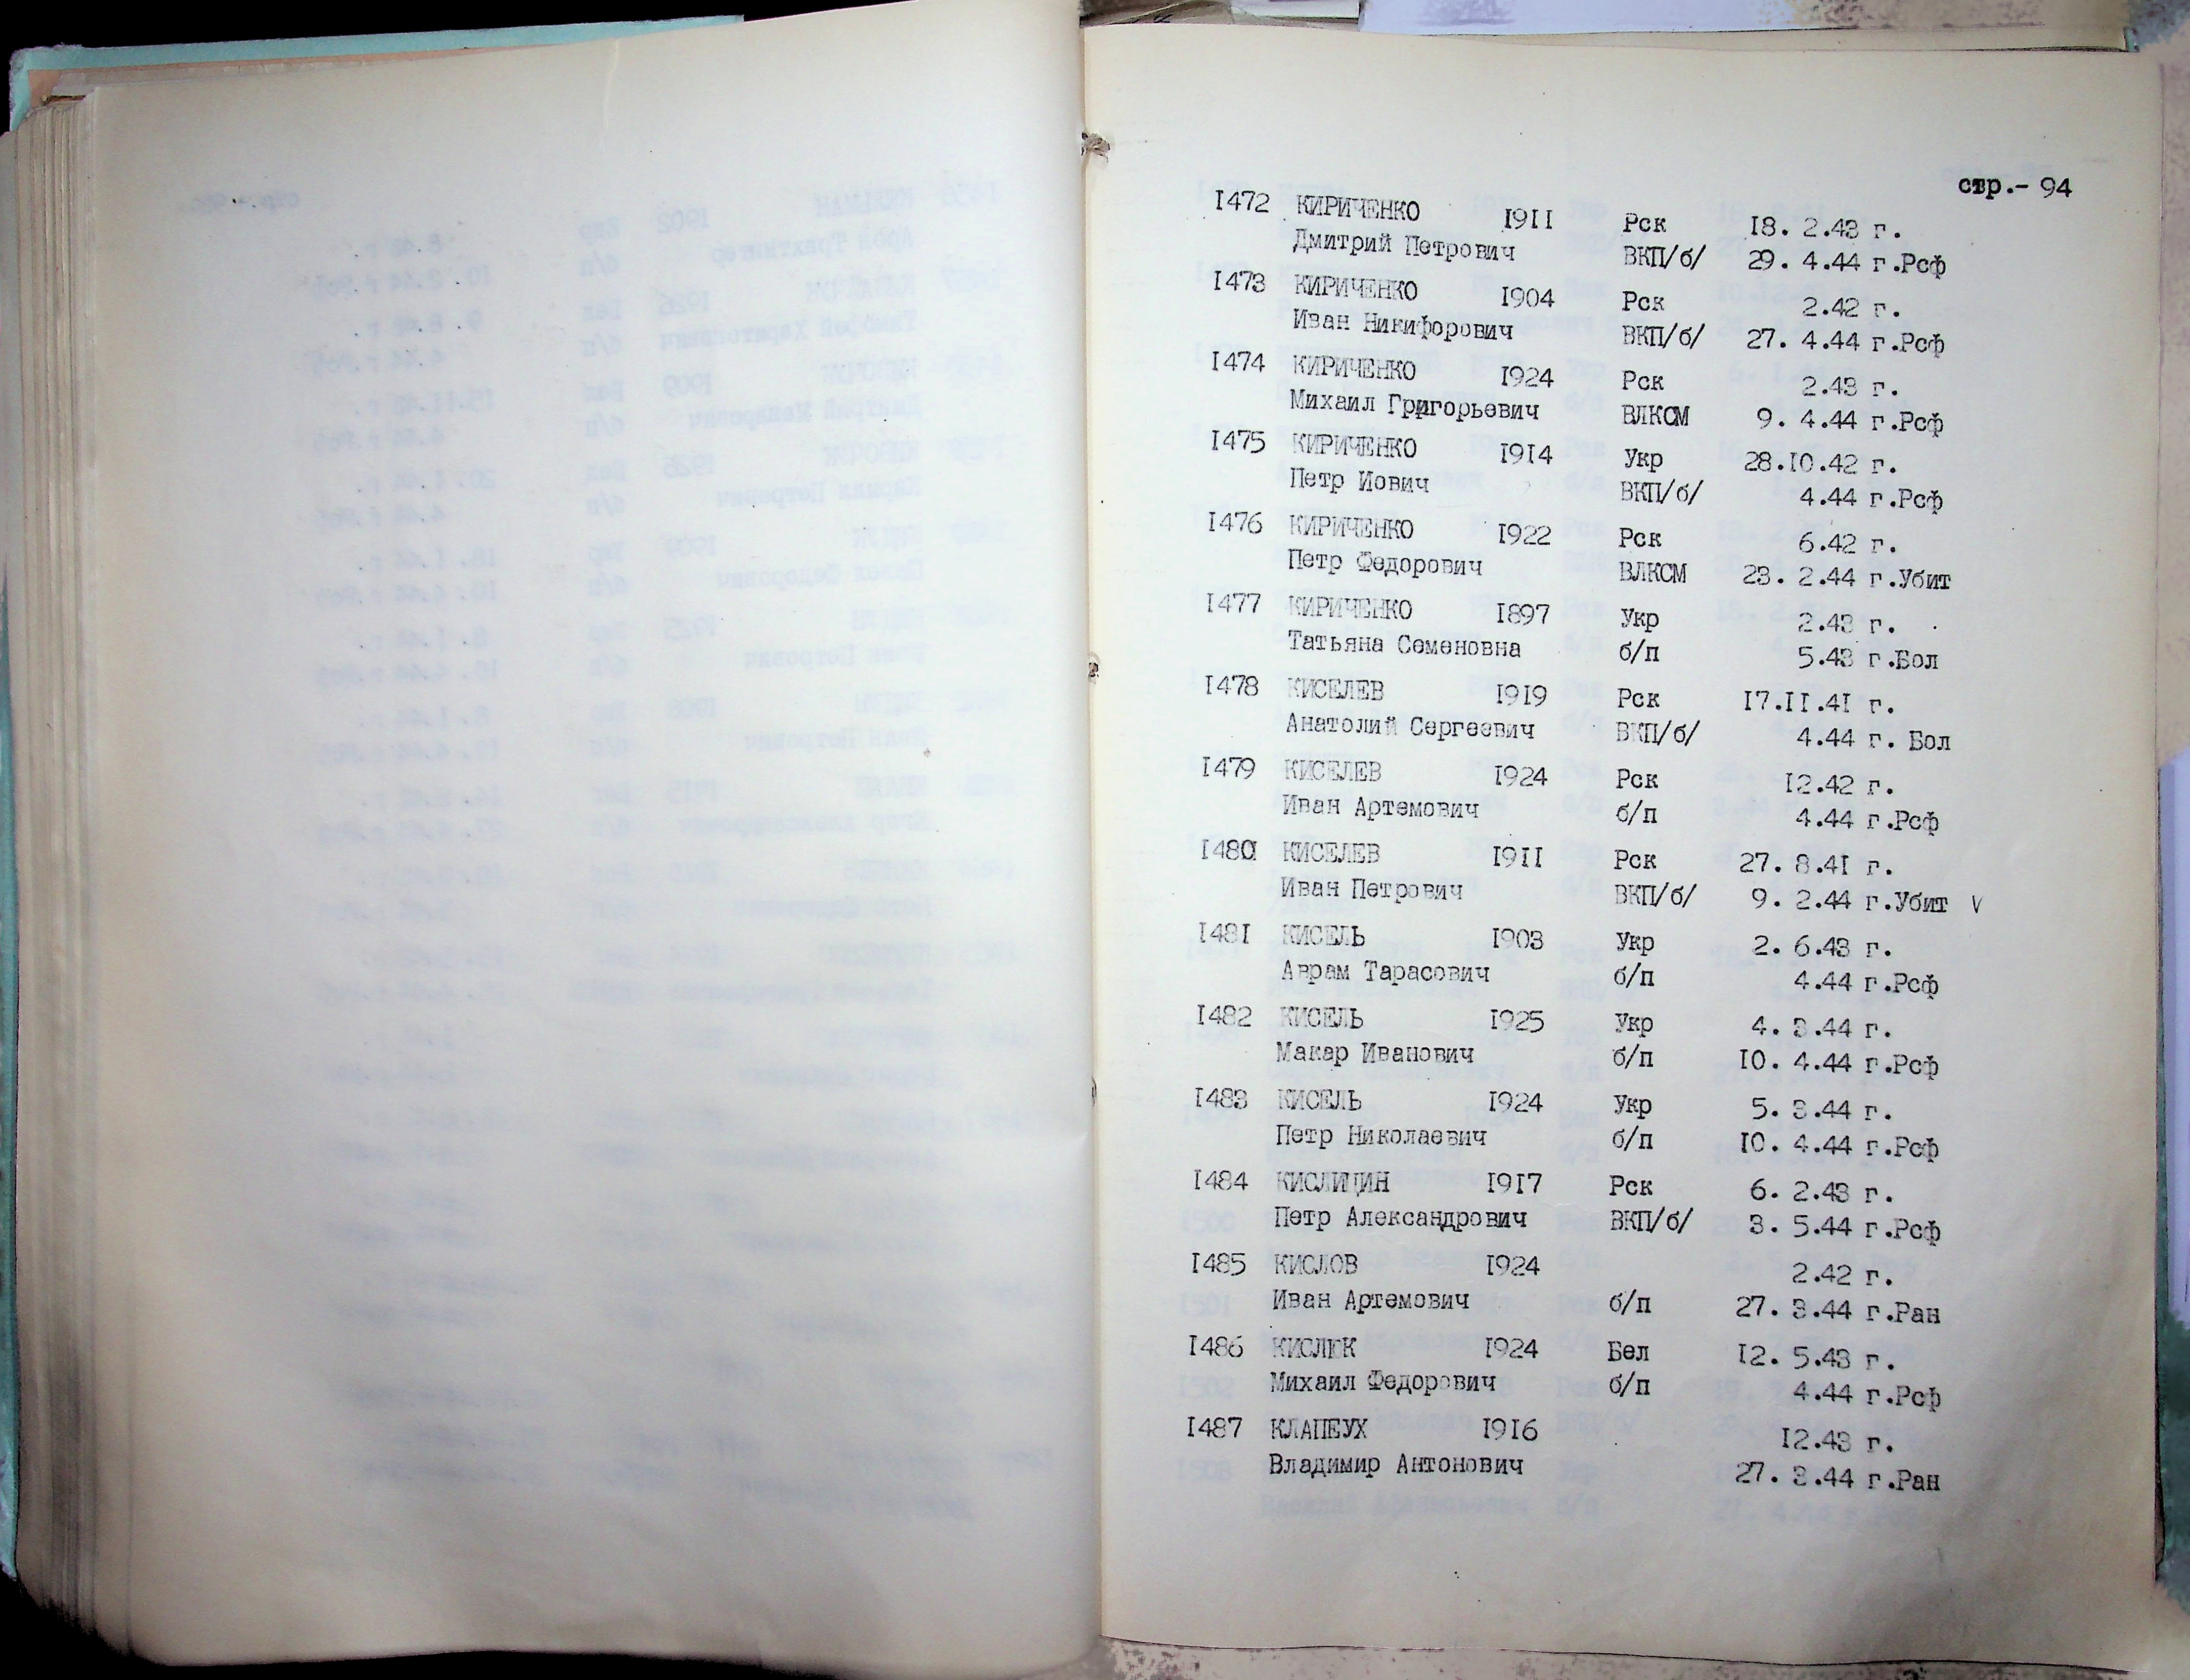 стр.- 94
I472 КИРИЧЕНКО I9II Рск I8. 2.43 г.
Дмитрий Петрович ВКП/б/ 29. 4.44 г.Рсф
I473 КИРИЧЕНКО I904 Рск 2.42 г.
Иван Никифорович ВКП/б/ 27. 4.44 г.Рсф
I474 КИРИЧЕНКО I924 Рск 2.43 г.
Михаил Григорьевич ВЛКСМ 9. 4.44 г.Рсф
I475 КИРИЧЕНКО I9I4 Укр 28.I0.42 г.
Петр Иович ВКП/б/ 4.44 г.Рсф
I476 КИРИЧЕНКО I922 Рск 6.42 г.
Петр Федорович ВЛКСМ 23. 2.44 г.Убит
I477 КИРИЧЕНКО I897 Укр 2.43 г.
Татьяна Семеновна б/п 5.43 г.Бол
I478 КИСЕЛЕВ I9I9 Рск I7.II.4I г.
Анатолий Сергеевич ВКП/б/ 4.44 г. Бол
I479 КИСЕЛЕВ I924 Рск I2.42 г.
Иван Артемович б/п 4.44 г.Рсф
I480 КИСЕЛЕВ I9II Рск 27. 8.4I г.
Иван Петрович ВКП/б/ 9. 2.44 г.Убит V
I48I КИСЕЛЬ I903 Укр 2. 6.43 г.
Аврам Тарасович б/п 4.44 г.Рсф
I482 КИСЕЛЬ I925 Укр 4. 3.44 г.
Макар Иванович б/п I0. 4.44 г.Рсф
I483 КИСЕЛЬ I924 Укр 5. 3.44 г.
Петр Николаевич б/п I0. 4.44 г.Рсф
I484 КИСЛИЦИН I9I7 Рск 6. 2.43 г.
Петр Александрович ВКП/б/ 3. 5.44 г.Рсф
I485 КИСЛОВ I924 2.42 г.
Иван Артемович б/п 27. 3.44 г.Ран
I486 КИСЛЮК I924 Бел I2. 5.43 г.
Михаил Федорович б/п 4.44 г.Рсф
I487 КЛАПЕУХ I9I6 I2.43 г.
Владимир Антонович 27. 3.44 г.Ран